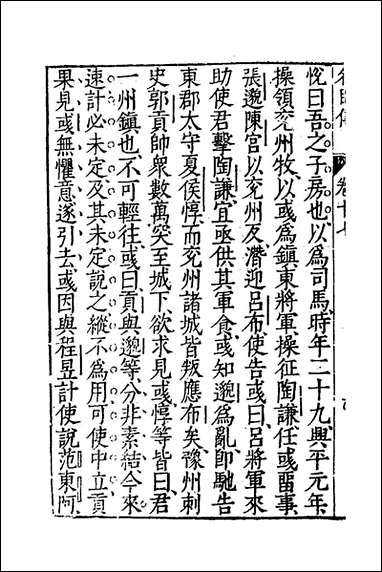 悅曰吾之子房也以爲司馬時年二十九興平元年
操領兖州牧以彧爲鎮東將軍操征陶謙任彧畱事
張邈陳宮以兖州反潛迎呂布使告彧曰呂將軍來
助使君擊陶謙宜亟供其軍食彧知邈爲亂卽馳告
東郡太守夏侯惇而兖州諸城皆叛應布矣豫州刺
史郭貢帥衆數萬突至城下欲求見彧惇等皆曰君
一州鎮也不可輕往彧曰貢與邈等分非素結今來
速計必未定及其未定說之縱不爲用可使中立貢
果見彧無懼意遂引去彧因與程昱計使說范東阿
卷十七